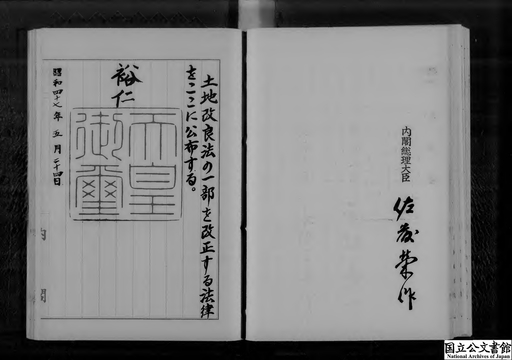 内閣総理大臣
佐藤榮作
土地改良法の一部を改正する法律
をここに公布する。
裕仁
天皇
御璽
昭和四十七年五月二十四日
内閣
国立公文書館
National Archives of Japan